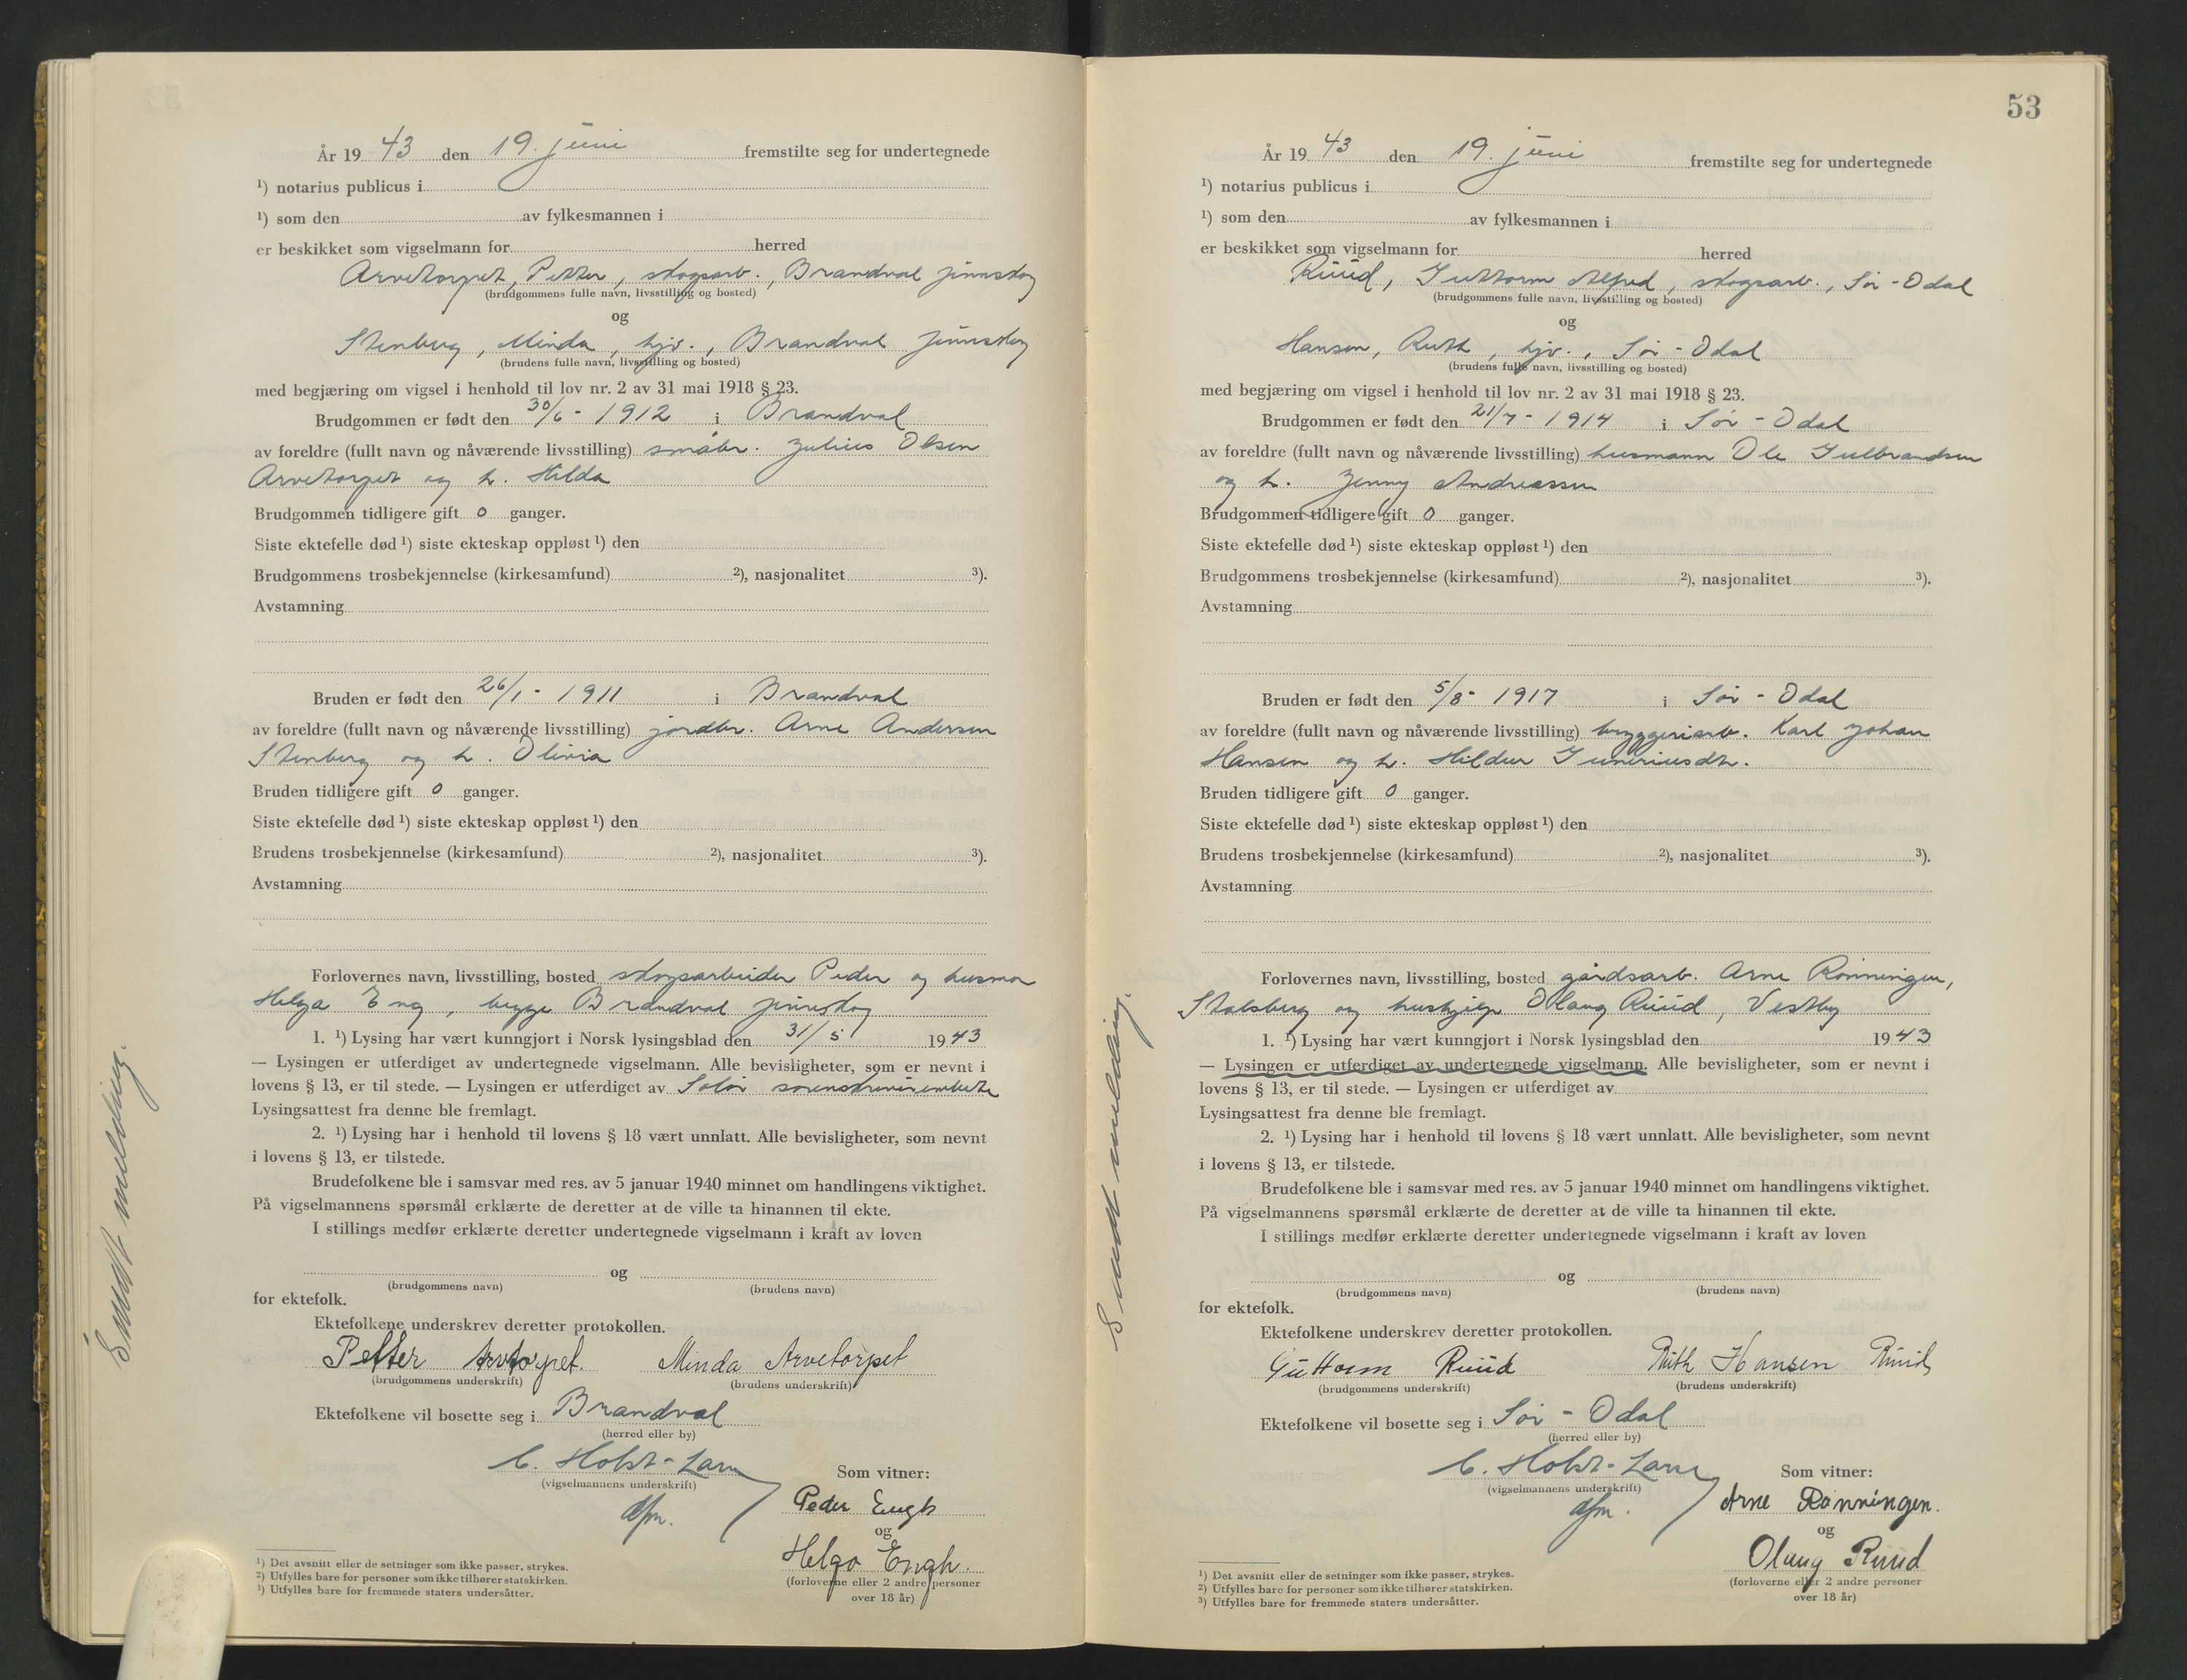 År 19 43 den 19. juni fremstilte seg for undertegnede
¹) notarius publicus i
¹) som den av fylkesmannen i
er beskikket som vigselmann for herred
Arvetorpet, Petter, skogsarb., Brandval Finnskog
(brudgommens fulle navn, livsstilling og bosted)
og
Stenberg, Minda, hjv., Brandval Finnskog
(brudens fulle navn, livsstilling og bosted)
med begjæring om vigsel i henhold til lov nr. 2 av 31 mai 1918 § 23.
Brudgommen er født den 30/6 - 1912 i Brandval
av foreldre (fullt navn og nåværende livsstilling) småbr. Julius Olsen
Arvetorpet og h. Hilda
Brudgommen tidligere gift 0 ganger.
Siste ektefelle død ¹) siste ekteskap oppløst ¹) den
Brudgommens trosbekjennelse (kirkesamfund) ²), nasjonalitet ³).
Avstamning
Bruden er født den 26/1 - 1911 i Brandval
av foreldre (fullt navn og nåværende livsstilling) jordbr. Arne Andersen
Stenberg og h. Olivia
Bruden tidligere gift 0 ganger.
Siste ektefelle død ¹) siste ekteskap oppløst ¹) den
Brudens trosbekjennelse (kirkesamfund) ²), nasjonalitet ³).
Avstamning
Forlovernes navn, livsstilling, bosted skogsarbeider Peder og husmor
Helga Eng, begge Brandval Finnskog
1. ¹) Lysing har vært kunngjort i Norsk lysingsblad den 31/5 1943
— Lysingen er utferdiget av undertegnede vigselmann. Alle bevisligheter, som er nevnt i
lovens § 13, er til stede. — Lysingen er utferdiget av Solør sorenskriverembete
Lysingsattest fra denne ble fremlagt.
2. ¹) Lysing har i henhold til lovens § 18 vært unnlatt. Alle bevisligheter, som nevnt
i lovens § 13, er tilstede.
Brudefolkene ble i samsvar med res. av 5 januar 1940 minnet om handlingens viktighet.
På vigselmannens spørsmål erklærte de deretter at de ville ta hinannen til ekte.
I stillings medfør erklærte deretter undertegnede vigselmann i kraft av loven
og
(brudgommens navn) (brudens navn)
for ektefolk.
Ektefolkene underskrev deretter protokollen.
Petter Arvetorpet. Minda Arvetorpet
(brudgommens underskrift) (brudens underskrift)
Ektefolkene vil bosette seg i Brandval
(herred eller by)
C. Holst-Larsen
(vigselmannens underskrift)
dfm.
Som vitner:
Peder Engh
og
Helga Engh.
(forloverne eller 2 andre personer
over 18 år)
¹) Det avsnitt eller de setninger som ikke passer, strykes.
²) Utfylles bare for personer som ikke tilhører statskirken.
¹) Utfylles bare for fremmede staters undersåtter.
Sendt melding.
53
År 19 43 den 19. juni fremstilte seg for undertegnede
¹) notarius publicus i
¹) som den av fylkesmannen i
er beskikket som vigselmann for herred
Ruud, Guttorm Alfred, skogsarb., Sør-Odal
(brudgommens fulle navn, livsstilling og bosted)
og
Hansen, Ruth, hjv., Sør-Odal
(brudens fulle navn, livsstilling og bosted)
med begjæring om vigsel i henhold til lov nr. 2 av 31 mai 1918 § 23.
Brudgommen er født den 21/7 - 1914 i Sør-Odal
av foreldre (fullt navn og nåværende livsstilling) husmann Ole Gulbrandsen
og h. Jenny Andreassen
Brudgommen tidligere gift 0 ganger.
Siste ektefelle død ¹) siste ekteskap oppløst ¹) den
Brudgommens trosbekjennelse (kirkesamfund) ²), nasjonalitet ³).
Avstamning
Bruden er født den 5/8 - 1917 i Sør-Odal
av foreldre (fullt navn og nåværende livsstilling) bryggeriarb. Karl Johan
Hansen og h. Hildur Guneriusdtr.
Bruden tidligere gift 0 ganger.
Siste ektefelle død ¹) siste ekteskap oppløst ¹) den
Brudens trosbekjennelse (kirkesamfund) ²), nasjonalitet ³).
Avstamning
Forlovernes navn, livsstilling, bosted gårdsarb. Arne Rønningen,
Stalsberg og hushjelp Olaug Ruud, Vestby
1. ¹) Lysing har vært kunngjort i Norsk lysingsblad den 1943
— Lysingen er utferdiget av undertegnede vigselmann. Alle bevisligheter, som er nevnt i
lovens § 13, er til stede. — Lysingen er utferdiget av
Lysingsattest fra denne ble fremlagt.
2. ¹) Lysing har i henhold til lovens § 18 vært unnlatt. Alle bevisligheter, som nevnt
i lovens § 13, er tilstede.
Brudefolkene ble i samsvar med res. av 5 januar 1940 minnet om handlingens viktighet.
På vigselmannens spørsmål erklærte de deretter at de ville ta hinannen til ekte.
I stillings medfør erklærte deretter undertegnede vigselmann i kraft av loven
og
(brudgommens navn) (brudens navn)
for ektefolk.
Ektefolkene underskrev deretter protokollen.
Guttorm Ruud Ruth Hansen Ruud
(brudgommens underskrift) (brudens underskrift)
Ektefolkene vil bosette seg i Sør-Odal
(herred eller by)
C. Holst-Larsen
(vigselmannens underskrift)
dfm.
Som vitner:
Arne Rønningen.
og
Olaug Ruud
(forloverne eller 2 andre personer
over 18 år)
¹) Det avsnitt eller de setninger som ikke passer, strykes.
²) Utfylles bare for personer som ikke tilhører statskirken.
³) Utfylles bare for fremmede staters undersåtter.
Sendt melding.